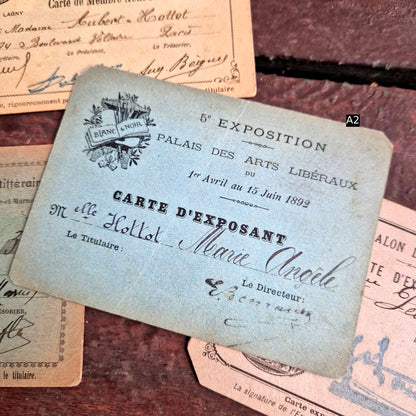 LAGNY
Carte de Membre
Madame Hubert-Hottot
Boulevard Voltaire Paris
Le Président, Le Trésorier,
Guy Bègues
rigoureusement
A2
5e EXPOSITION
BLANC & NOIR
PALAIS DES ARTS LIBÉRAUX
DU
1er Avril au 15 Juin 1892
CARTE D'EXPOSANT
Melle Hottot Marie Angèle
Le Titulaire:
Le Directeur:
littéraire
et-Marne
le titulaire.
SALON
Carte
La signature de